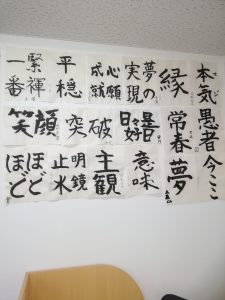 本気
縁
夢の
実現
心願
成就
平穏
緊褌
一番
愚者
常春
日々是好日
突破
笑顔
今ここ
夢
意味
主観
明鏡
止水
ほど
ほど